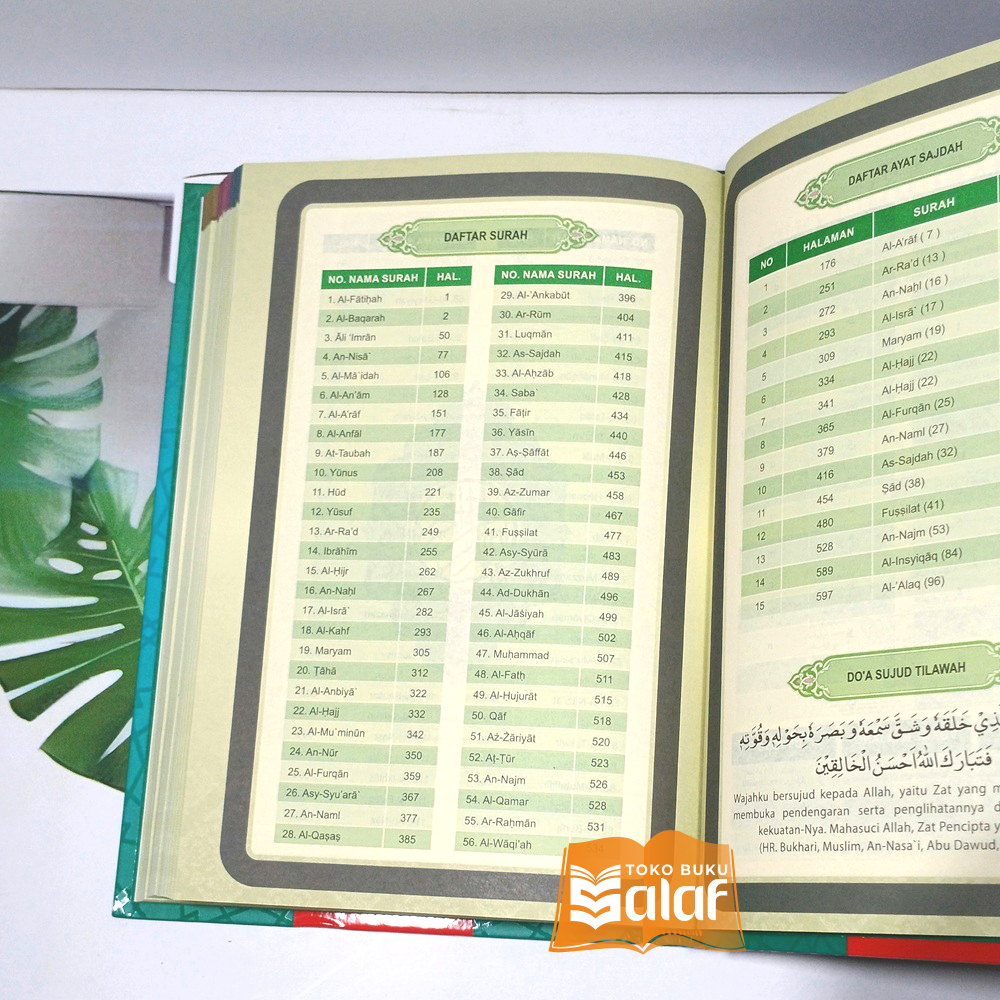 DAFTAR SURAH
NO. NAMA SURAH HAL.
1. Al-Fātiḥah 1
2. Al-Baqarah 2
3. Āli ‘Imrān 50
4. An-Nisā` 77
5. Al-Mā`idah 106
6. Al-An‘ām 128
7. Al-A‘rāf 151
8. Al-Anfāl 177
9. At-Taubah 187
10. Yūnus 208
11. Hūd 221
12. Yūsuf 235
13. Ar-Ra‘d 249
14. Ibrāhīm 255
15. Al-Ḥijr 262
16. An-Naḥl 267
17. Al-Isrā` 282
18. Al-Kahf 293
19. Maryam 305
20. Ṭāhā 312
21. Al-Anbiyā` 322
22. Al-Ḥajj 332
23. Al-Mu`minūn 342
24. An-Nūr 350
25. Al-Furqān 359
26. Asy-Syu‘arā` 367
27. An-Naml 377
28. Al-Qaṣaṣ 385
NO. NAMA SURAH HAL.
29. Al-‘Ankabūt 396
30. Ar-Rūm 404
31. Luqmān 411
32. As-Sajdah 415
33. Al-Aḥzāb 418
34. Saba` 428
35. Fāṭir 434
36. Yāsīn 440
37. Aṣ-Ṣāffāt 446
38. Ṣād 453
39. Az-Zumar 458
40. Gāfir 467
41. Fuṣṣilat 477
42. Asy-Syūrā 483
43. Az-Zukhruf 489
44. Ad-Dukhān 496
45. Al-Jāṡiyah 499
46. Al-Aḥqāf 502
47. Muḥammad 507
48. Al-Fatḥ 511
49. Al-Ḥujurāt 515
50. Qāf 518
51. Aż-Żāriyāt 520
52. Aṭ-Ṭūr 523
53. An-Najm 526
54. Al-Qamar 528
55. Ar-Raḥmān 531
56. Al-Wāqi‘ah 534
DAFTAR AYAT SAJDAH
NO HALAMAN SURAH
1 176 Al-A‘rāf ( 7 )
2 251 Ar-Ra‘d ( 13 )
3 272 An-Naḥl ( 16 )
4 293 Al-Isrā` ( 17 )
5 309 Maryam (19)
6 334 Al-Ḥajj (22)
7 341 Al-Ḥajj (22)
8 365 Al-Furqān (25)
9 379 An-Naml (27)
10 416 As-Sajdah (32)
11 454 Ṣād (38)
12 480 Fuṣṣilat (41)
13 528 An-Najm (53)
14 589 Al-Insyiqāq (84)
15 597 Al-‘Alaq (96)
DO'A SUJUD TILAWAH
خَلَقَهُ وَشَقَّ سَمْعَهُ وَبَصَرَهُ بِحَوْلِهِ وَقُوَّتِهِ
فَتَبَارَكَ اللهُ أَحْسَنُ الْخَالِقِيْنَ
Wajahku bersujud kepada Allah, yaitu Zat yang
membuka pendengaran serta penglihatannya
kekuatan-Nya. Mahasuci Allah, Zat Pencipta
(HR. Bukhari, Muslim, An-Nasa`i, Abu Dawud,
TOKO BUKU
Salaf